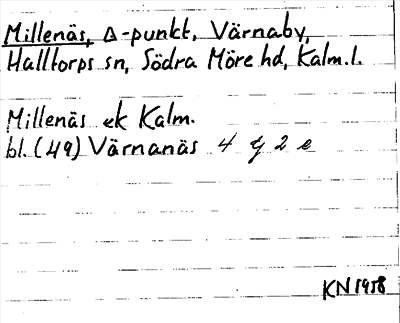 Millenäs, Δ-punkt, Värnaby,
Halltorps sn, Södra Möre hd, Kalm.l.
Millenäs ek Kalm.
bl. (49) Värnanäs 4 g 2 e
KN 1958